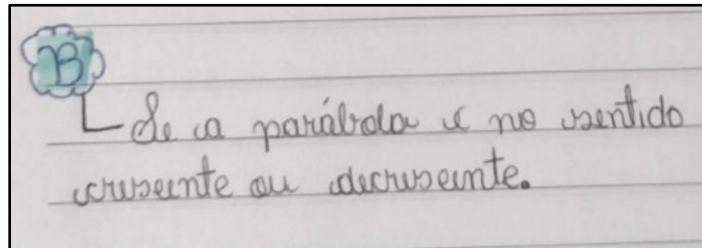 B
Se a parábola é no sentido
cruseente ou decruseente.